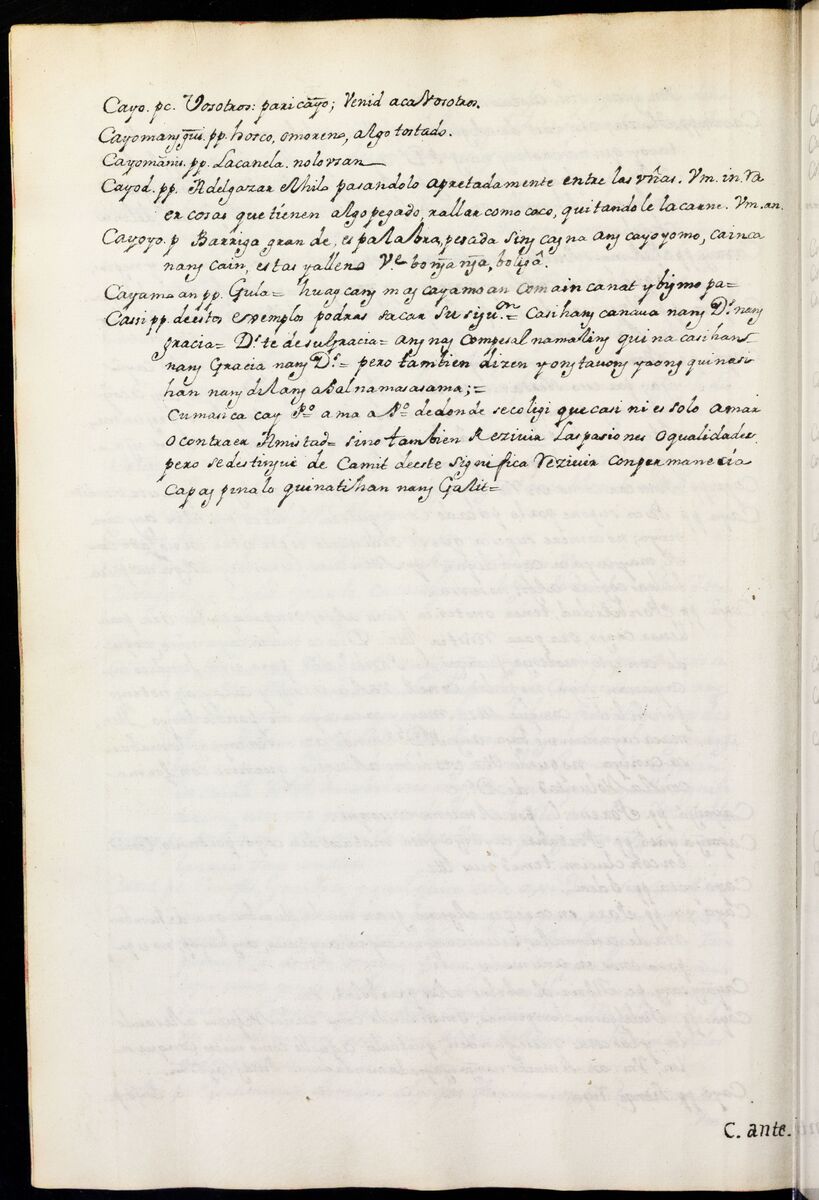 Cayo. pc. Vosotros: pari cãyo; Venid aca Vosotros.
Cayomang̃gui. pp. hosco, o moreno, algo tostado.
Cayomãnis. pp. La canela. no lo vsan
Cayod. pp. Adelgazar el hilo pasandolo apretadamente entre las vñas. Vm. in. Va
er cosas que tienen algo pegado, rallar como coco, quitandole la carne. Vm. an.
Cayoyo. p Barriga grande, es palabra, pesada sing cayna ang cayoyomo, cainca
nang cain, estas ya lleno Ve
Cayamoan pp. Gula= huag cang mag cayamoan comain canat y bigmo pa=
Cassi pp. de estos exemplos podras sacar su sigu.on Casihang canaua nang D.s nang
gracia= D.s te de su Gracia= ang mag compesal na maling qui na casihans
nang Gracia nang D.s= pero tambien dizen yong tauong yaong quinasi
han nang dilang asal na masasama;=
Cumasica cay P.o ama a P.o de donde se coligi que casi ni es solo amar
o contraer Amistad= sino tambien Rezivir Las pasiones o qualidades
pero se destingue de Camit de este significa rezivir con permanecia
capag pinalo quinatihan nang Galit=
C. ante.